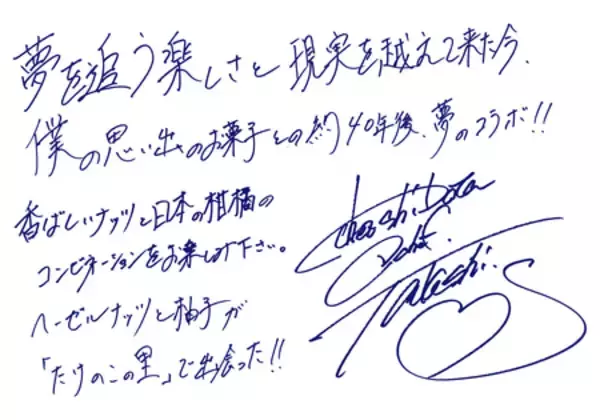 夢を追う楽しさと現実を越えて来た今、
僕の思い出のお菓子との約40年後、夢のコラボ!!
香ばしいナッツと日本の柑橘の
コンビネーションをお楽しみ下さい。
ヘーゼルナッツと柚子が
「たけのこの里」で出会った!!
Takashi.